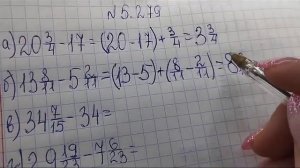 № 5.279
а) 20 3/4 - 17 = (20 - 17) + 3/4 = 3 3/4
б) 13 8/11 - 5 2/11 = (13 - 5) + (8/11 - 2/11) = 8
в) 34 7/15 - 34 =
29 19/23 - 7 6/23 =